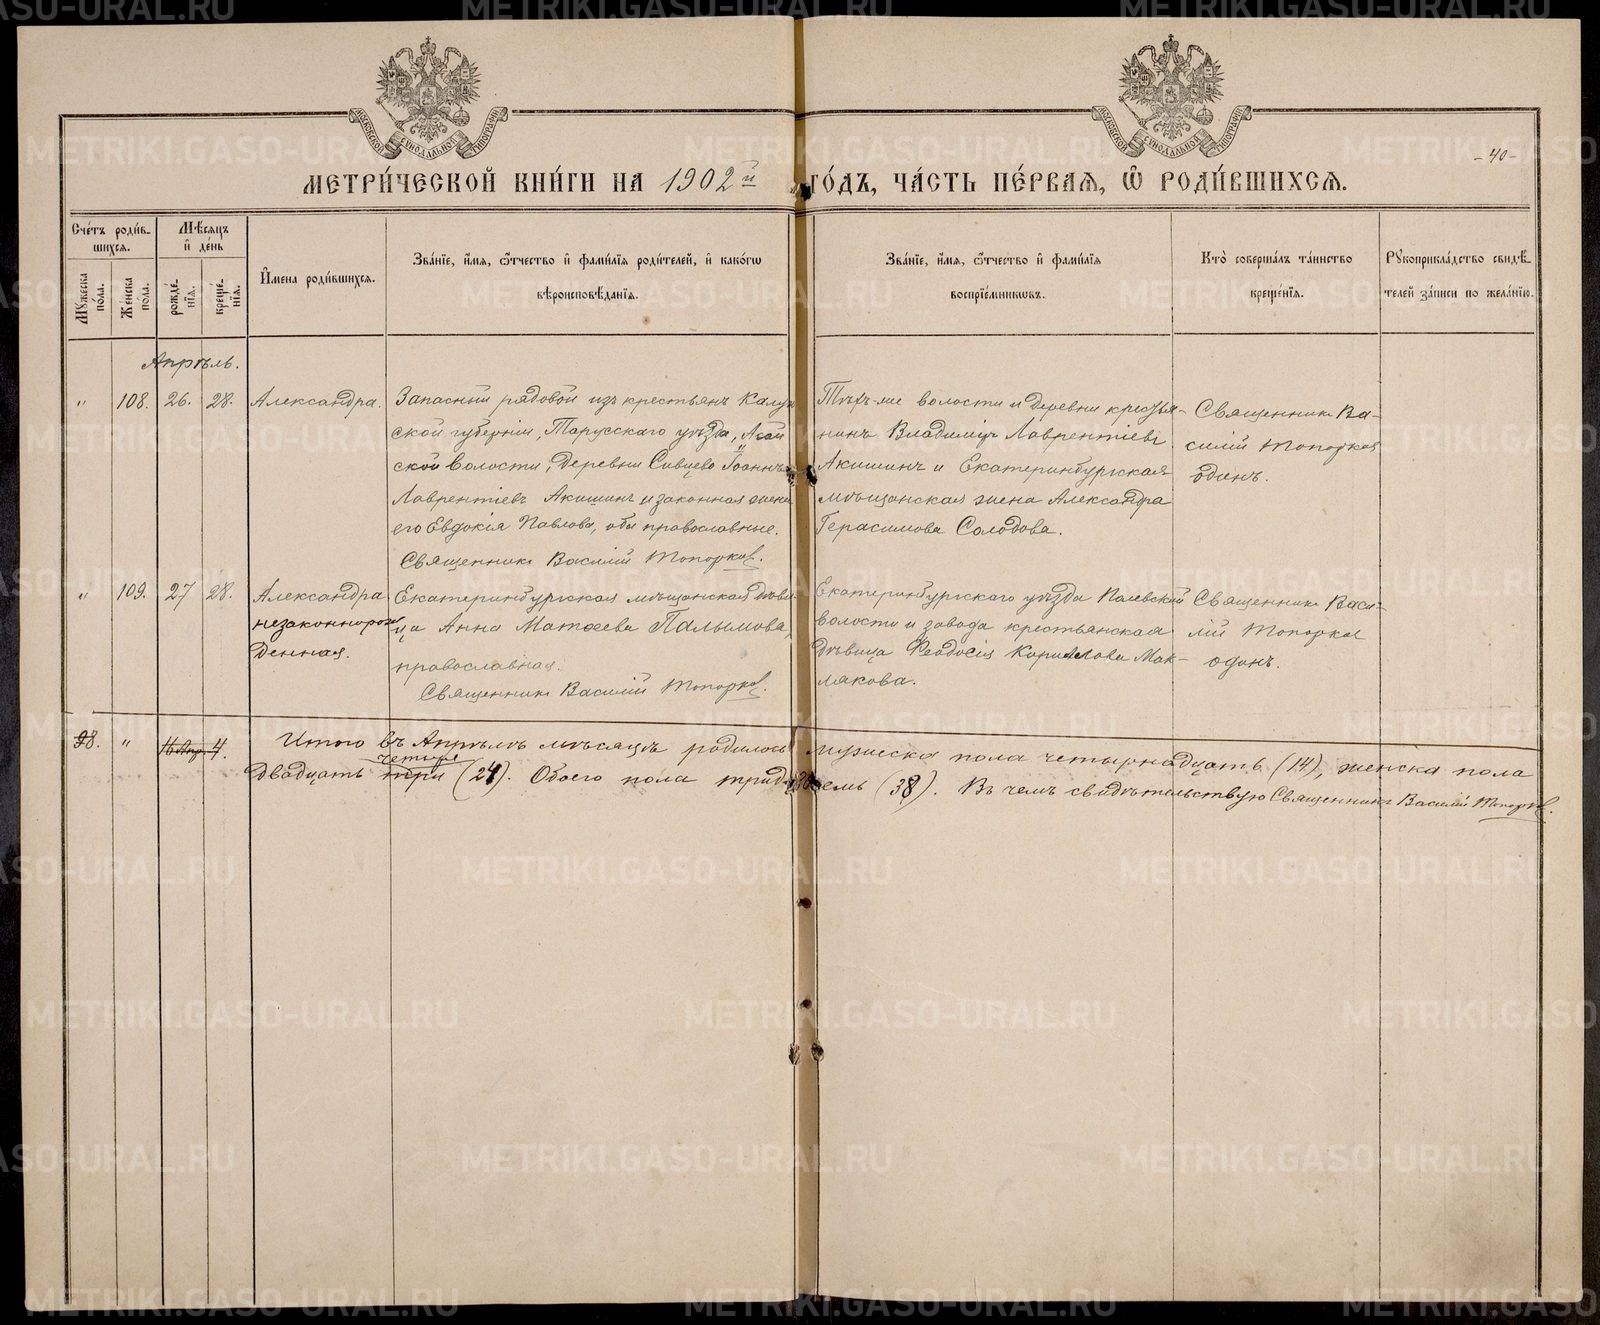 МОСКОВСКОЙ СѴНОДАЛЬНОЙ ТИПОГРАФІИ
МОСКОВСКОЙ СѴНОДАЛЬНОЙ ТИПОГРАФІИ
-40-
МЕТРИ́ЧЕСКОЙ КНИ́ГИ НА 1902й ГО́ДЪ, ЧА́СТЬ ПЕ́РВАѦ, Ѡ РОДИ́ВШИХСѦ.
Сче́тъ роди́в-
шихся.
Мѣсѧцъ
и де́нь
Мꙋжеска по́ла.
Же́нска пола.
рожде́-
нїѧ.
креще́-
нїѧ.
Имена роди́вшихсѧ.
Зва́нїе, и́мѧ, ѻ҆́тчество и фами́лїѧ роди́телей, и како́гѡ
вѣроисповѣ́данїѧ.
Зва́нїе, и́мѧ, ѻ҆́тчество и фами́лїѧ
воспрїе́мникѡвъ.
Кто̀ соверша́лъ та́инство
креще́нїѧ.
Рꙋкоприкла́дство свидѣ́-
телей за́писи по жела́нїю.
Апрѣль.
" 108. 26. 28. Александра.
Запасный рядовой изъ крестьянъ Калуж
ской губерніи, Тарусскаго уѣзда,
ской волости, деревни Сивцево Іоаннъ
Лаврентіевъ Акишинъ и законная жена
его Евдокія Павлова, оба православные.
Священникъ Василій Топорков.
волости и деревни кресть-
янинъ Владиміръ Лаврентіевъ
Акишинъ и Екатеринбургская
мѣщанская жена Александра
Герасимова Солодова.
Священникъ Ва-
силій Топорков
одинъ.
" 109. 27 28. Александра
незаконнорож
денная.
Екатеринбургская мѣщанская дѣви-
ца Анна Матѳеева Палымова,
православная.
Священникъ Василій Топорков.
Екатеринбургскаго уѣзда Полевской
волости и завода крестьянская
дѣвица Феодосія Кориллова Мак-
лякова.
Священникъ Васи-
лій Топорков
одинъ.
98. " 16 Апр. 4.
Итого въ Апрѣлѣ мѣсяцѣ родилось мужеска пола четырнадцать (14), женска пола
четыре
двадцать три (24). Обоего пола тридцать восемь (38). Въ чемъ свидѣтельствую Священникъ Василій Топорков.
METRIKI.GASO-URAL.RU